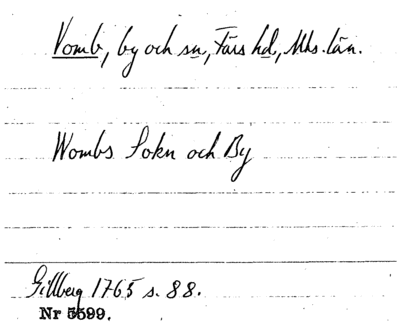 Vomb, by och sn, Färs hd, Mhs. län.
Wombs Sokn och By
Gillberg 1765 s. 88.
Nr 5599.